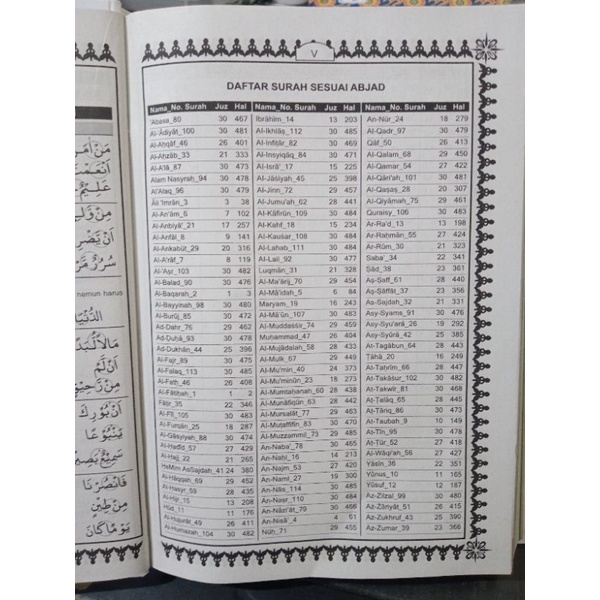 مَنْ اٰمَرَ
عَلَيْهِمْ
namun harus
الدُّنْيَا
V
DAFTAR SURAH SESUAI ABJAD
Nama_No. Surah Juz Hal
'Abasa_80 30 467
Al-'Ādiyāt_100 30 481
Al-Aḥqāf_46 26 401
Al-Aḥzāb_33 21 333
Al-A'lā_87 30 473
Alam Nasyrah_94 30 478
Al'Alaq_96 30 479
Āli 'Imrān_3 3 38
Al-An'ām_6 7 102
Al-Anbiyā'_21 17 257
Al-Anfāl_8 9 141
Al-Ankabūt_29 20 316
Al-A'rāf_7 8 119
Al-'Aṣr_103 30 482
Al-Balad_90 30 476
Al-Baqarah_2 1 3
Al-Bayyinah_98 30 480
Al-Burūj_85 30 472
Ad-Dahr_76 29 462
Aḍ-Ḍuḥā_93 30 478
Ad-Dukhān_44 25 396
Al-Fajr_89 30 475
Al-Falaq_113 30 485
Al-Fatḥ_46 26 408
Al-Fātiḥah_1 1 2
Fāṭir_35 22 346
Al-Fīl_105 30 483
Al-Furqān_25 18 287
Al-Gāsyiyah_88 30 474
Al-Ḥadīd_57 27 429
Al-Ḥajj_22 21 265
HaMim AsSajdah_41 24 380
Al-Ḥāqqah_69 29 452
Al-Ḥasyr_59 28 435
Al-Ḥijr_15 13 208
Hūd_11 11 176
Al-Ḥujurāt_49 26 411
Al-Humazah_104 30 482
Nama_No. Surah Juz Hal
Ibrāhīm_14 13 203
Al-Ikhlāṣ_112 30 485
Al-Infiṭār_82 30 469
Al-Insyiqāq_84 30 471
Al-Isrā'_17 15 225
Al-Jāṡiyah_45 25 398
Al-Jinn_72 29 457
Al-Jumu'ah_62 28 441
Al-Kāfirūn_109 30 484
Al-Kahf_18 15 234
Al-Kauṡar_108 30 484
Al-Lahab_111 30 484
Al-Lail_92 30 477
Luqmān_31 21 328
Al-Ma'ārij_70 29 454
Al-Mā'idah_5 6 84
Maryam_19 16 243
Al-Mā'ūn_107 30 483
Al-Muddaṡṡir_74 29 459
Muḥammad_47 26 404
Al-Mujādalah_58 28 433
Al-Mulk_67 29 449
Al-Mu'min_40 24 373
Al-Mu'minūn_23 18 273
Al-Mumtaḥanah_60 28 438
Al-Munāfiqūn_63 28 442
Al-Mursalāt_77 29 464
Al-Muṭaffifīn_83 30 470
Al-Muzzammil_73 29 458
An-Naba'_78 30 465
An-Naḥl_16 14 213
An-Najm_53 27 420
An-Naml_27 19 300
An-Nās_114 30 485
An-Naṣr_110 30 484
An-Nāzi'āt_79 30 466
An-Nisā'_4 4 61
Nūḥ_71 29 455
Nama_No. Surah Juz Hal
An-Nūr_24 18 279
Al-Qadr_97 30 479
Qāf_50 26 413
Al-Qalam_68 29 450
Al-Qamar_54 27 422
Al-Qāri'ah_101 30 481
Al-Qaṣaṣ_28 20 307
Al-Qiyāmah_75 29 461
Quraisy_106 30 483
Ar-Ra'd_13 13 198
Ar-Raḥmān_55 27 424
Ar-Rūm_30 21 323
Saba'_34 22 340
Ṣād_38 23 361
Aṣ-Ṣaff_61 28 440
Aṣ-Ṣāffāt_37 23 356
As-Sajdah_32 21 331
Asy-Syams_91 30 476
Asy-Syu'arā_26 19 292
At-Tagābun_64 28 443
Ṭāhā_20 16 249
At-Taḥrīm_66 28 447
At-Takāṡur_102 30 482
At-Takwīr_81 30 468
Aṭ-Ṭalāq_65 28 445
Aṭ-Ṭāriq_86 30 473
At-Taubah_9 10 149
At-Tīn_95 30 478
Aṭ-Ṭūr_52 27 418
Al-Wāqi'ah_56 27 427
Yāsīn_36 22 351
Yūnus_10 11 165
Yūsuf_12 12 187
Az-Zilzal_99 30 480
Aż-Żāriyāt_51 26 416
Az-Zukhruf_43 25 390
Az-Zumar_39 23 366